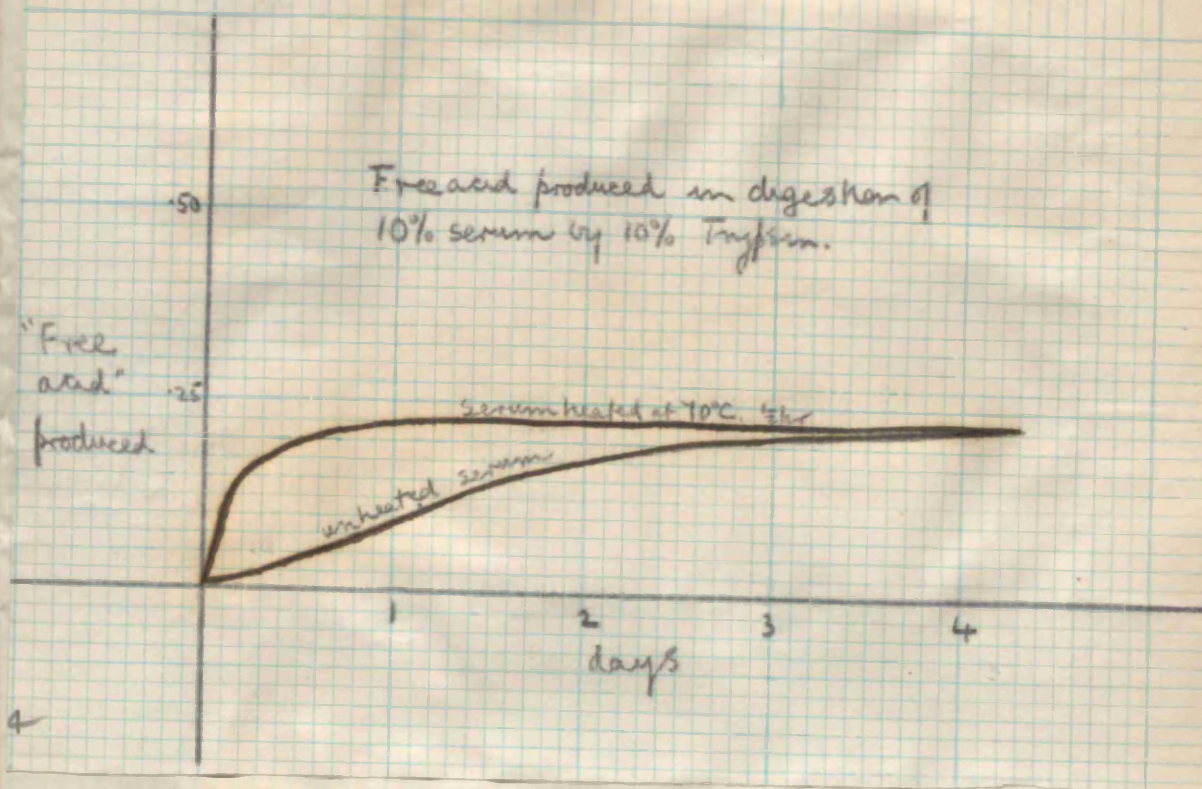 Free acid produced in digestion of
10% serum by 10% Trypsin.
.50
"Free
acid"
produced
.25
serum heated at 70°C. ½hr
unheated serum
1 2 3 4
days
4